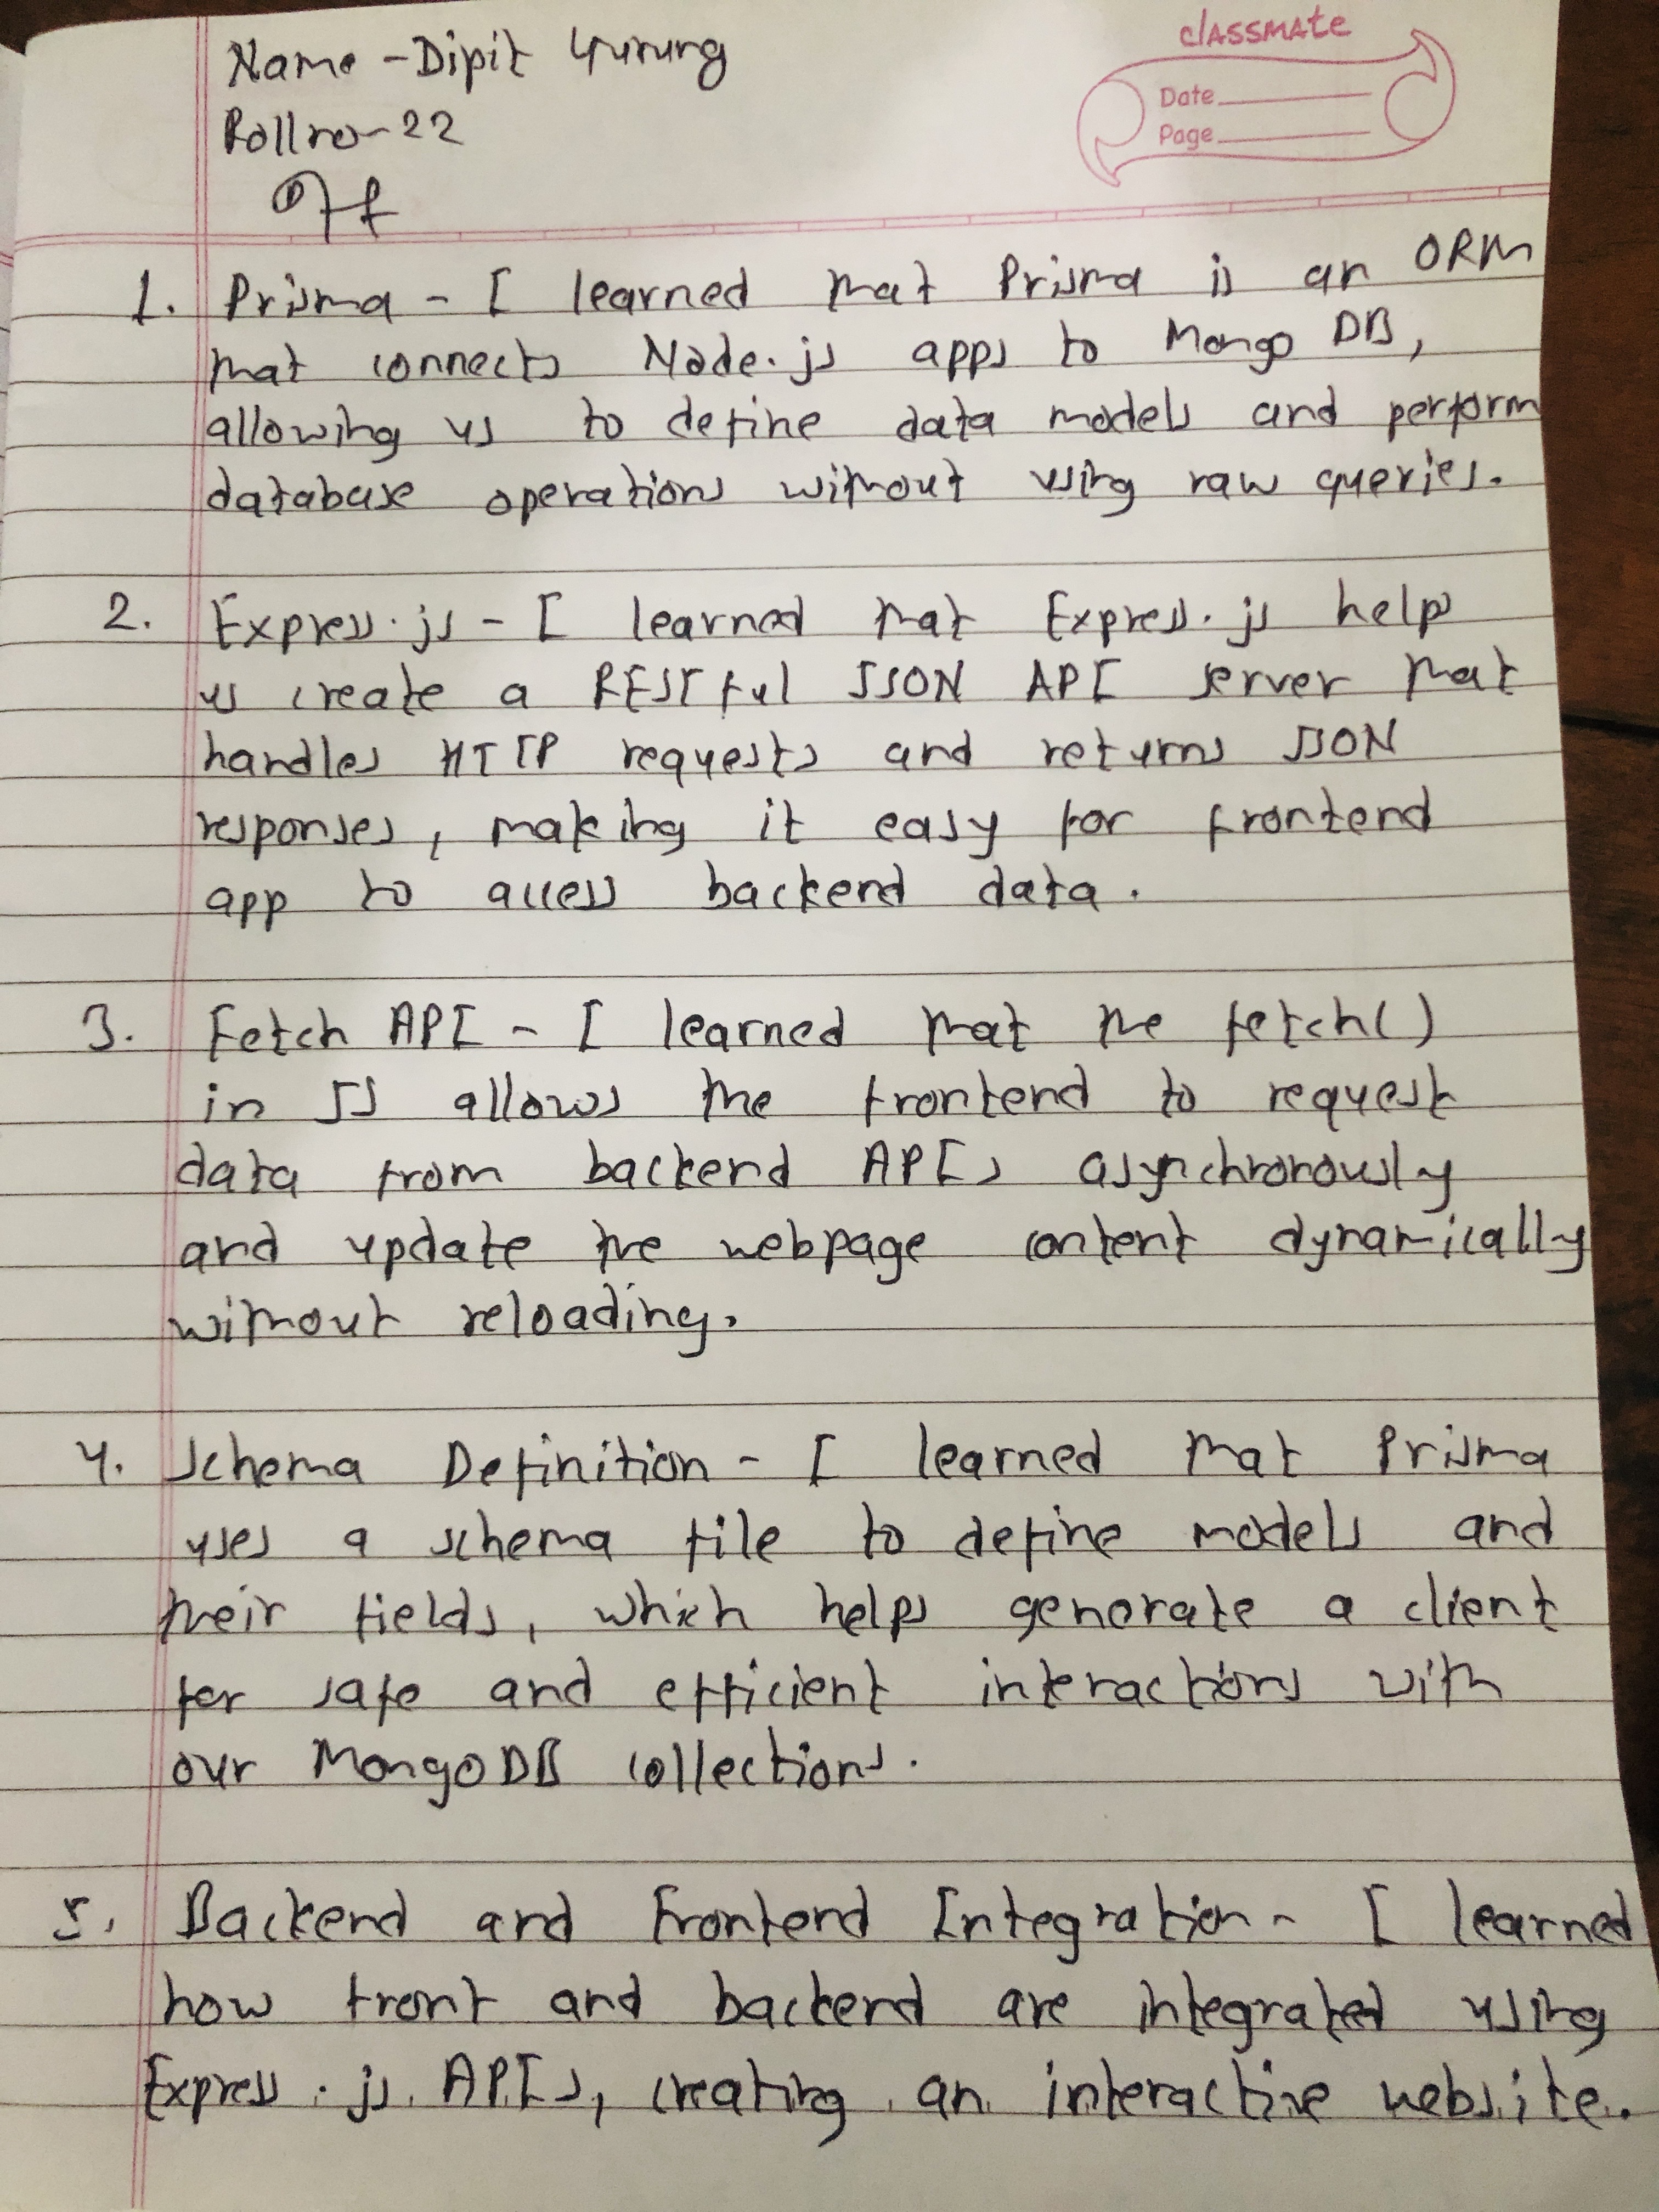 Name - Dipit Gurung
classmate
Date
Page
Rollno - 22
1. Prisma - I learned that Prisma is an ORM
that connects Node.js apps to Mongo DB,
allowing us to define data models and perform
database operations without using raw queries.
2. Express.js - I learned that Express.js help
us create a RESTful JSON API server that
handles HTTP requests and returns JSON
responses, making it easy for frontend
app to access backend data.
3. Fetch API - I learned that the fetch()
in JS allows the frontend to request
data from backend APIs asynchronously
and update the webpage content dynamically
without reloading.
4. Schema Definition - I learned that Prisma
uses a schema file to define models and
their fields, which helps generate a client
for safe and efficient interactions with
our MongoDB collections.
5. Backend and Frontend Integration - I learned
how front and backend are integrated using
Express.js APIs, creating an interactive website.